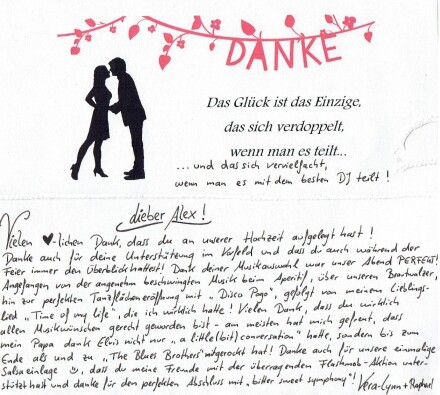 DANKE
Das Glück ist das Einzige,
das sich verdoppelt,
wenn man es teilt...
...und das sich vervielfacht,
wenn man es mit dem besten DJ teilt!
dieber Alex!
Vielen ♥-lichen Dank, dass du an unserer Hochzeit aufgelegt hast!
Danke auch für deine Unterstützung im Vorfeld und dass du auch während der
Feier immer den Überblick hattest! Dank deiner Musikauswahl war unser Abend PERFEKT!
Angefangen von der angenehm beschwingten Musik beim Aperitif, über unseren Brautwalzer,
hin zur perfekten Tanzflächeneröffnung mit "Disco Pogo", gefolgt von meinem Lieblings-
lied "Time of my life", die ich wirklich hatte! Vielen Dank, dass du wirklich
allen Musikwünschen gerecht geworden bist - am meisten hat mich gefreut, dass
mein Papa dank Elvis nicht nur "a little (bit) conversation" hatte, sondern bis zum
Ende als und zu "The Blues Brothers" mitgerockt hat! Danke auch für unsere einmalige
Salsaeinlage ☺, dass du meine Freunde mit der überragenden Flashmob-Aktion unter-
stützt hast und danke für den perfekten Abschluss mit "bitter sweet symphony"!
Vera-Lynn + Raphael